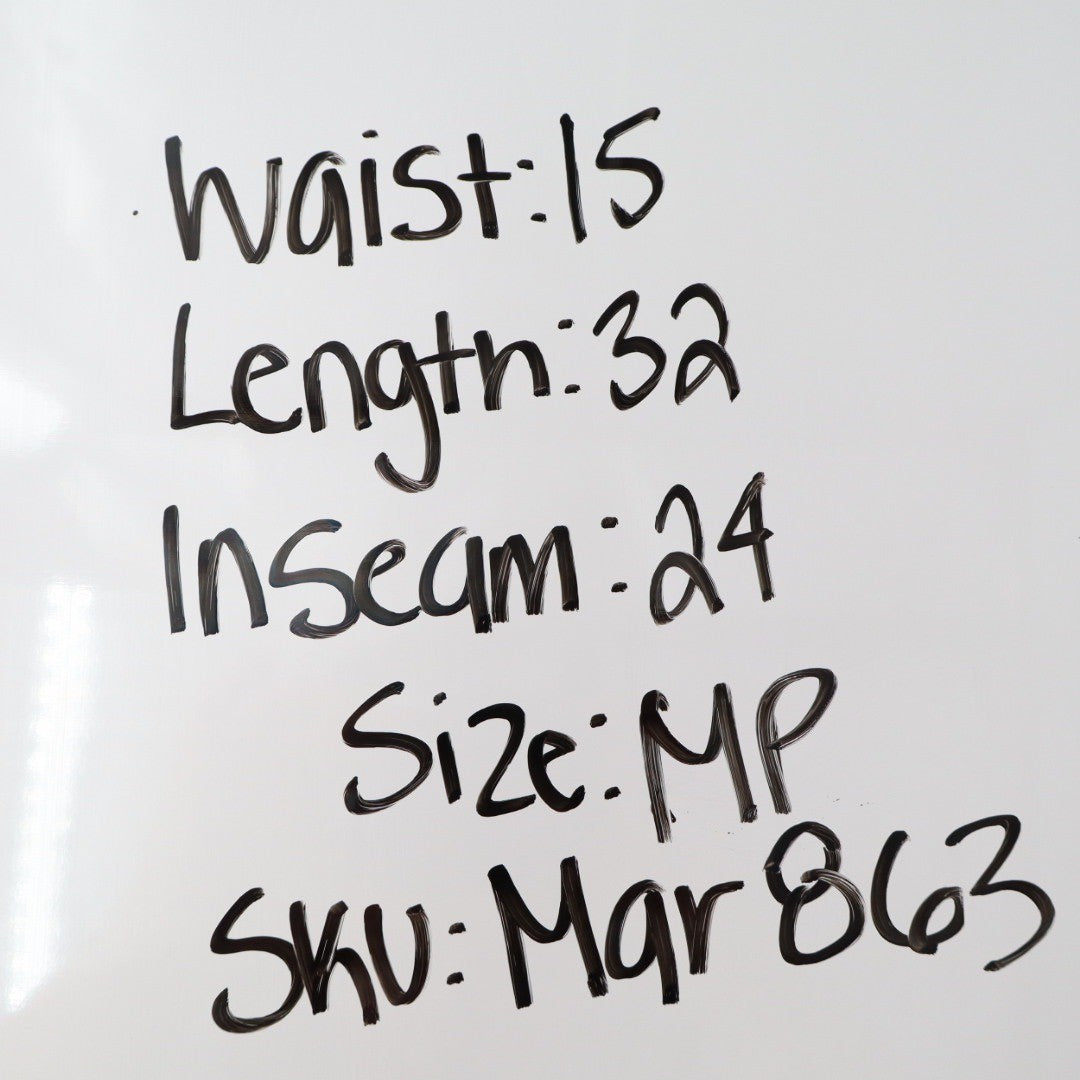 Waist: 15
Length: 32
Inseam: 24
Size: MP
Sku: Mar 863